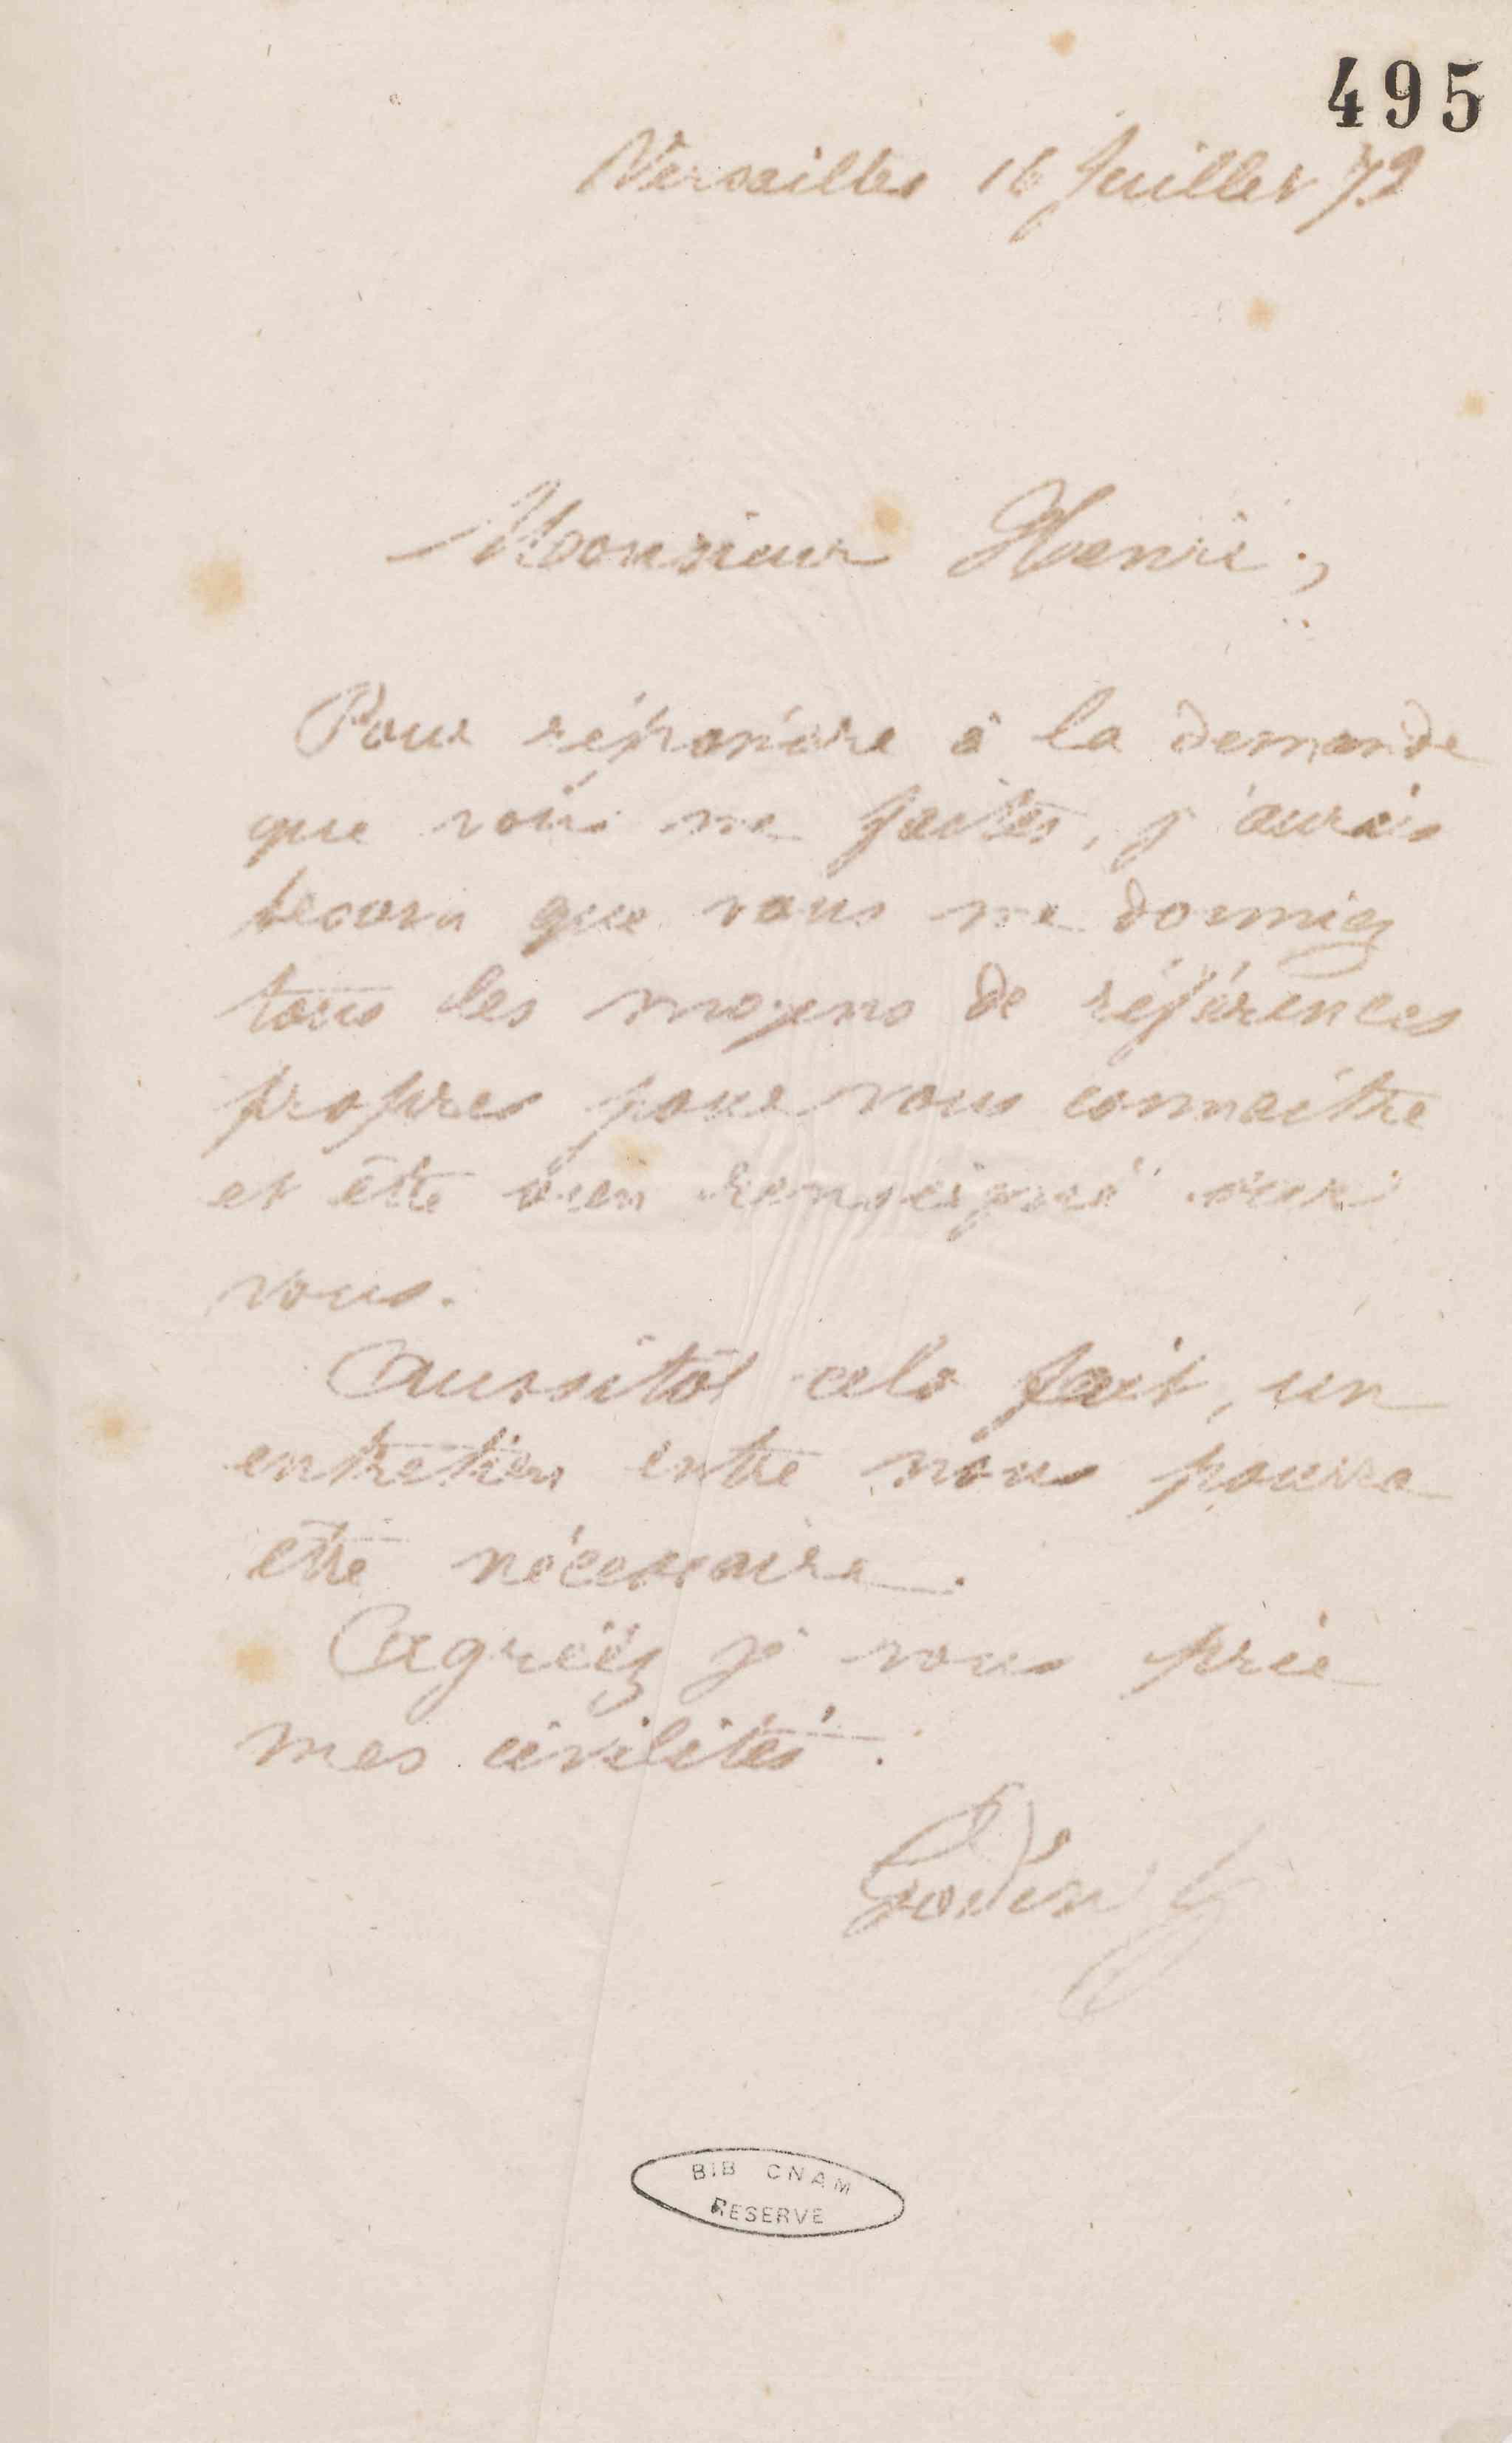 495
Versailles 16 Juillet 73
Monsieur Henri,
Pour répondre à la demande
que vous me faites, j'aurais
besoin que vous me donniez
tous les moyens de références
propres pour vous connaître
et être bien renseigné sur
vous.
Aussitôt cela fait, un
entretien entre nous pourra
être nécessaire.
Agréez je vous prie
mes civilités.
Godin
BIB CNAM
RESERVE